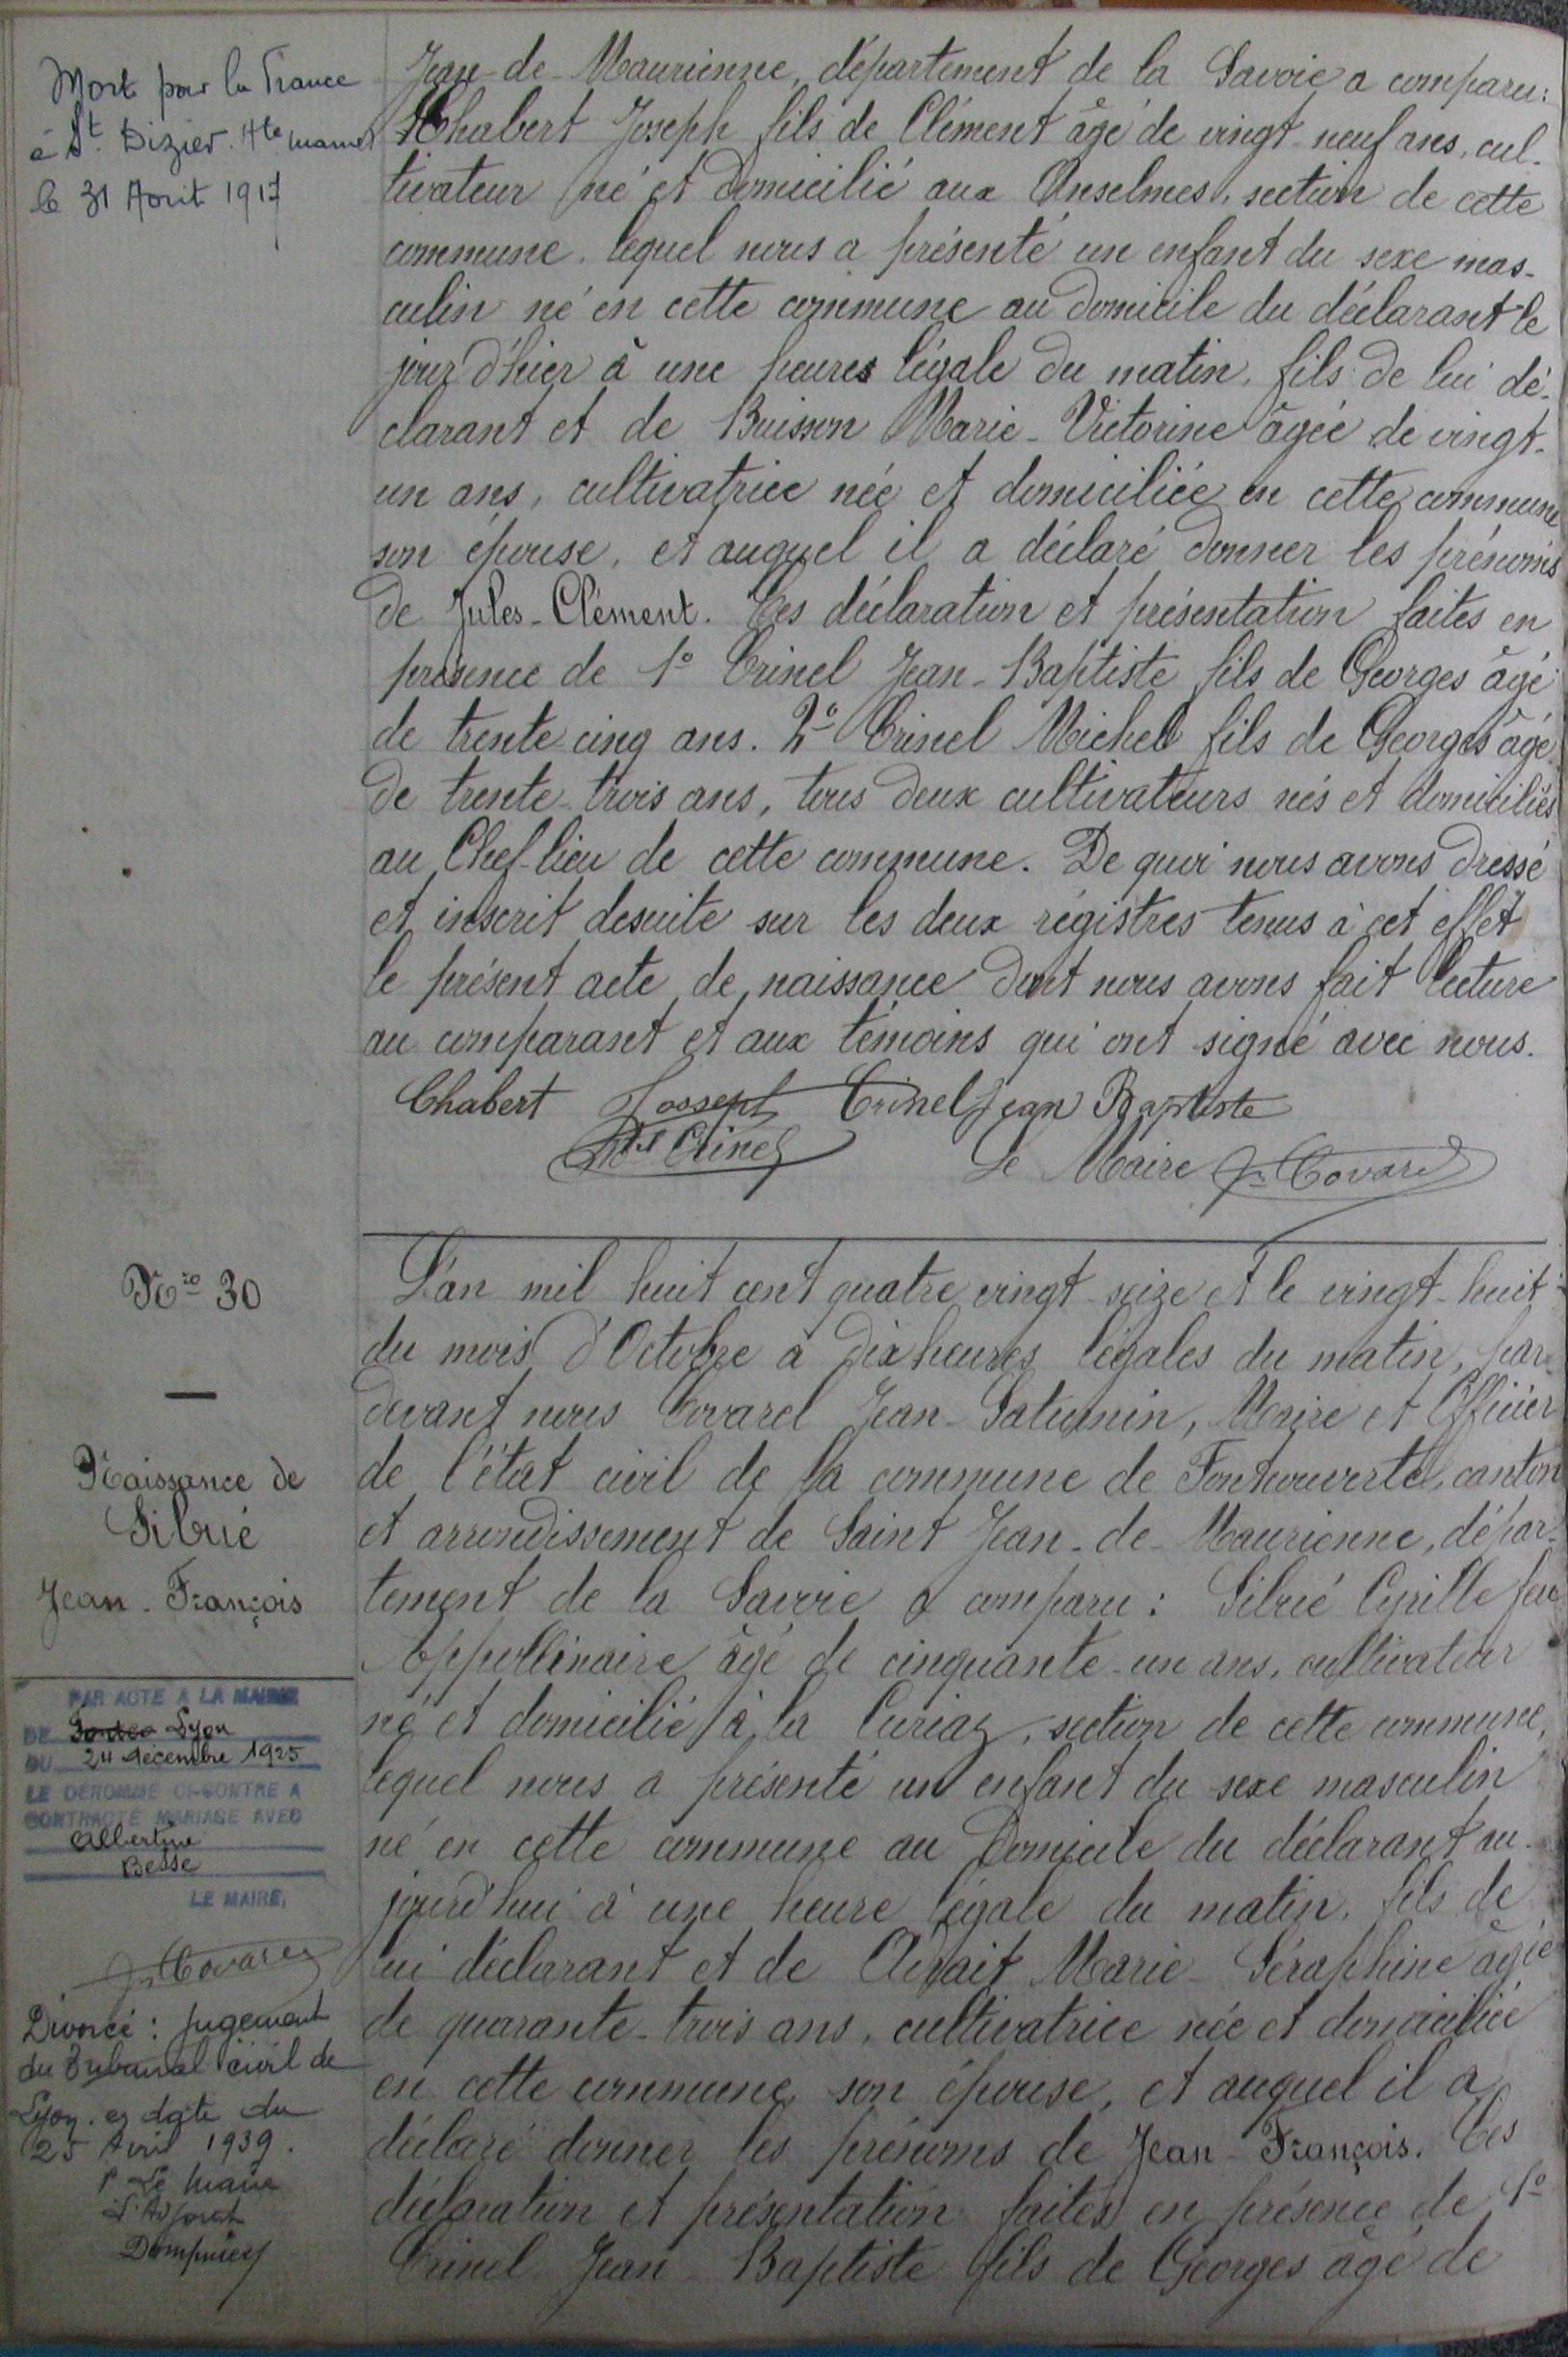 Mort par la France
à St. Dizier. Hte marne
le 31 Août 1917
Jean-de-Maurienne, département de la Savoie a comparu:
Chabert Joseph fils de Clément âgé de vingt-neuf ans, cul-
tivateur né et domicilié aux Anselmes, section de cette
commune, lequel nous a présenté un enfant du sexe mas-
culin né en cette commune au domicile du déclarant le
jour d'hier à une heures légale du matin, fils de lui dé-
clarant et de Buisson Marie-Victorine âgée de vingt-
un ans, cultivatrice née et domiciliée en cette commune
son épouse, et auquel il a déclaré donner les prénoms
de Jules-Clément. Ces déclaration et présentation faites en
présence de 1° Crinel Jean-Baptiste fils de Georges âgé
de trente cinq ans. 2° Crinel Michel fils de Georges âgé
de trente-trois ans, tous deux cultivateurs nés et domiciliés
au Chef-lieu de cette commune. De quoi nous avons dressé
et inscrit desuite sur les deux régistres tenus à cet effet
le présent acte de naissance dont nous avons fait lecture
au comparant et aux témoins qui ont signé avec nous.
Chabert Jossept Crinel Jean Baptiste
Crinel Le Maire Jn Covarel
Nro 30
Naissance de
Sibué
Jean-François
L'an mil huit cent quatre vingt-seize et le vingt-huit
du mois d'Octobre à dix heures légales du matin, par
devant nous Covarel Jean-Saturnin, Maire et Officier
de l'état civil de la commune de Fontcouverte, canton
et arrondissement de Saint Jean-de-Maurienne, dépar-
tement de la Savoie a comparu: Sibué Cyrille feu
Appollinaire âgé de cinquante-un ans, cultivateur
né et domicilié à la Curiaz, section de cette commune,
lequel nous a présenté un enfant du sexe masculin
né en cette commune au domicile du déclarant au-
jourd'hui à une heure légale du matin, fils de
lui déclarant et de Marie-Séraphine âgée
de quarante-trois ans, cultivatrice née et domiciliée
en cette commune son épouse, et auquel il a
déclaré donner les prénoms de Jean-François. Ces
déclaration et présentation faites en présence de 1°
Crinel Jean-Baptiste fils de Georges âgé de
PAR ACTE A LA MAIRIE
DE Lyon
DU 24 décembre 1925
LE DENOMMÉ CI-CONTRE A
CONTRACTÉ MARIAGE AVEC
Albertine
Besse
LE MAIRE,
Jn Covarel
Divorcé: jugement
du Tribunal civil de
Lyon. en date du
25 Avril 1939.
P Le Maire
L'Adjoint